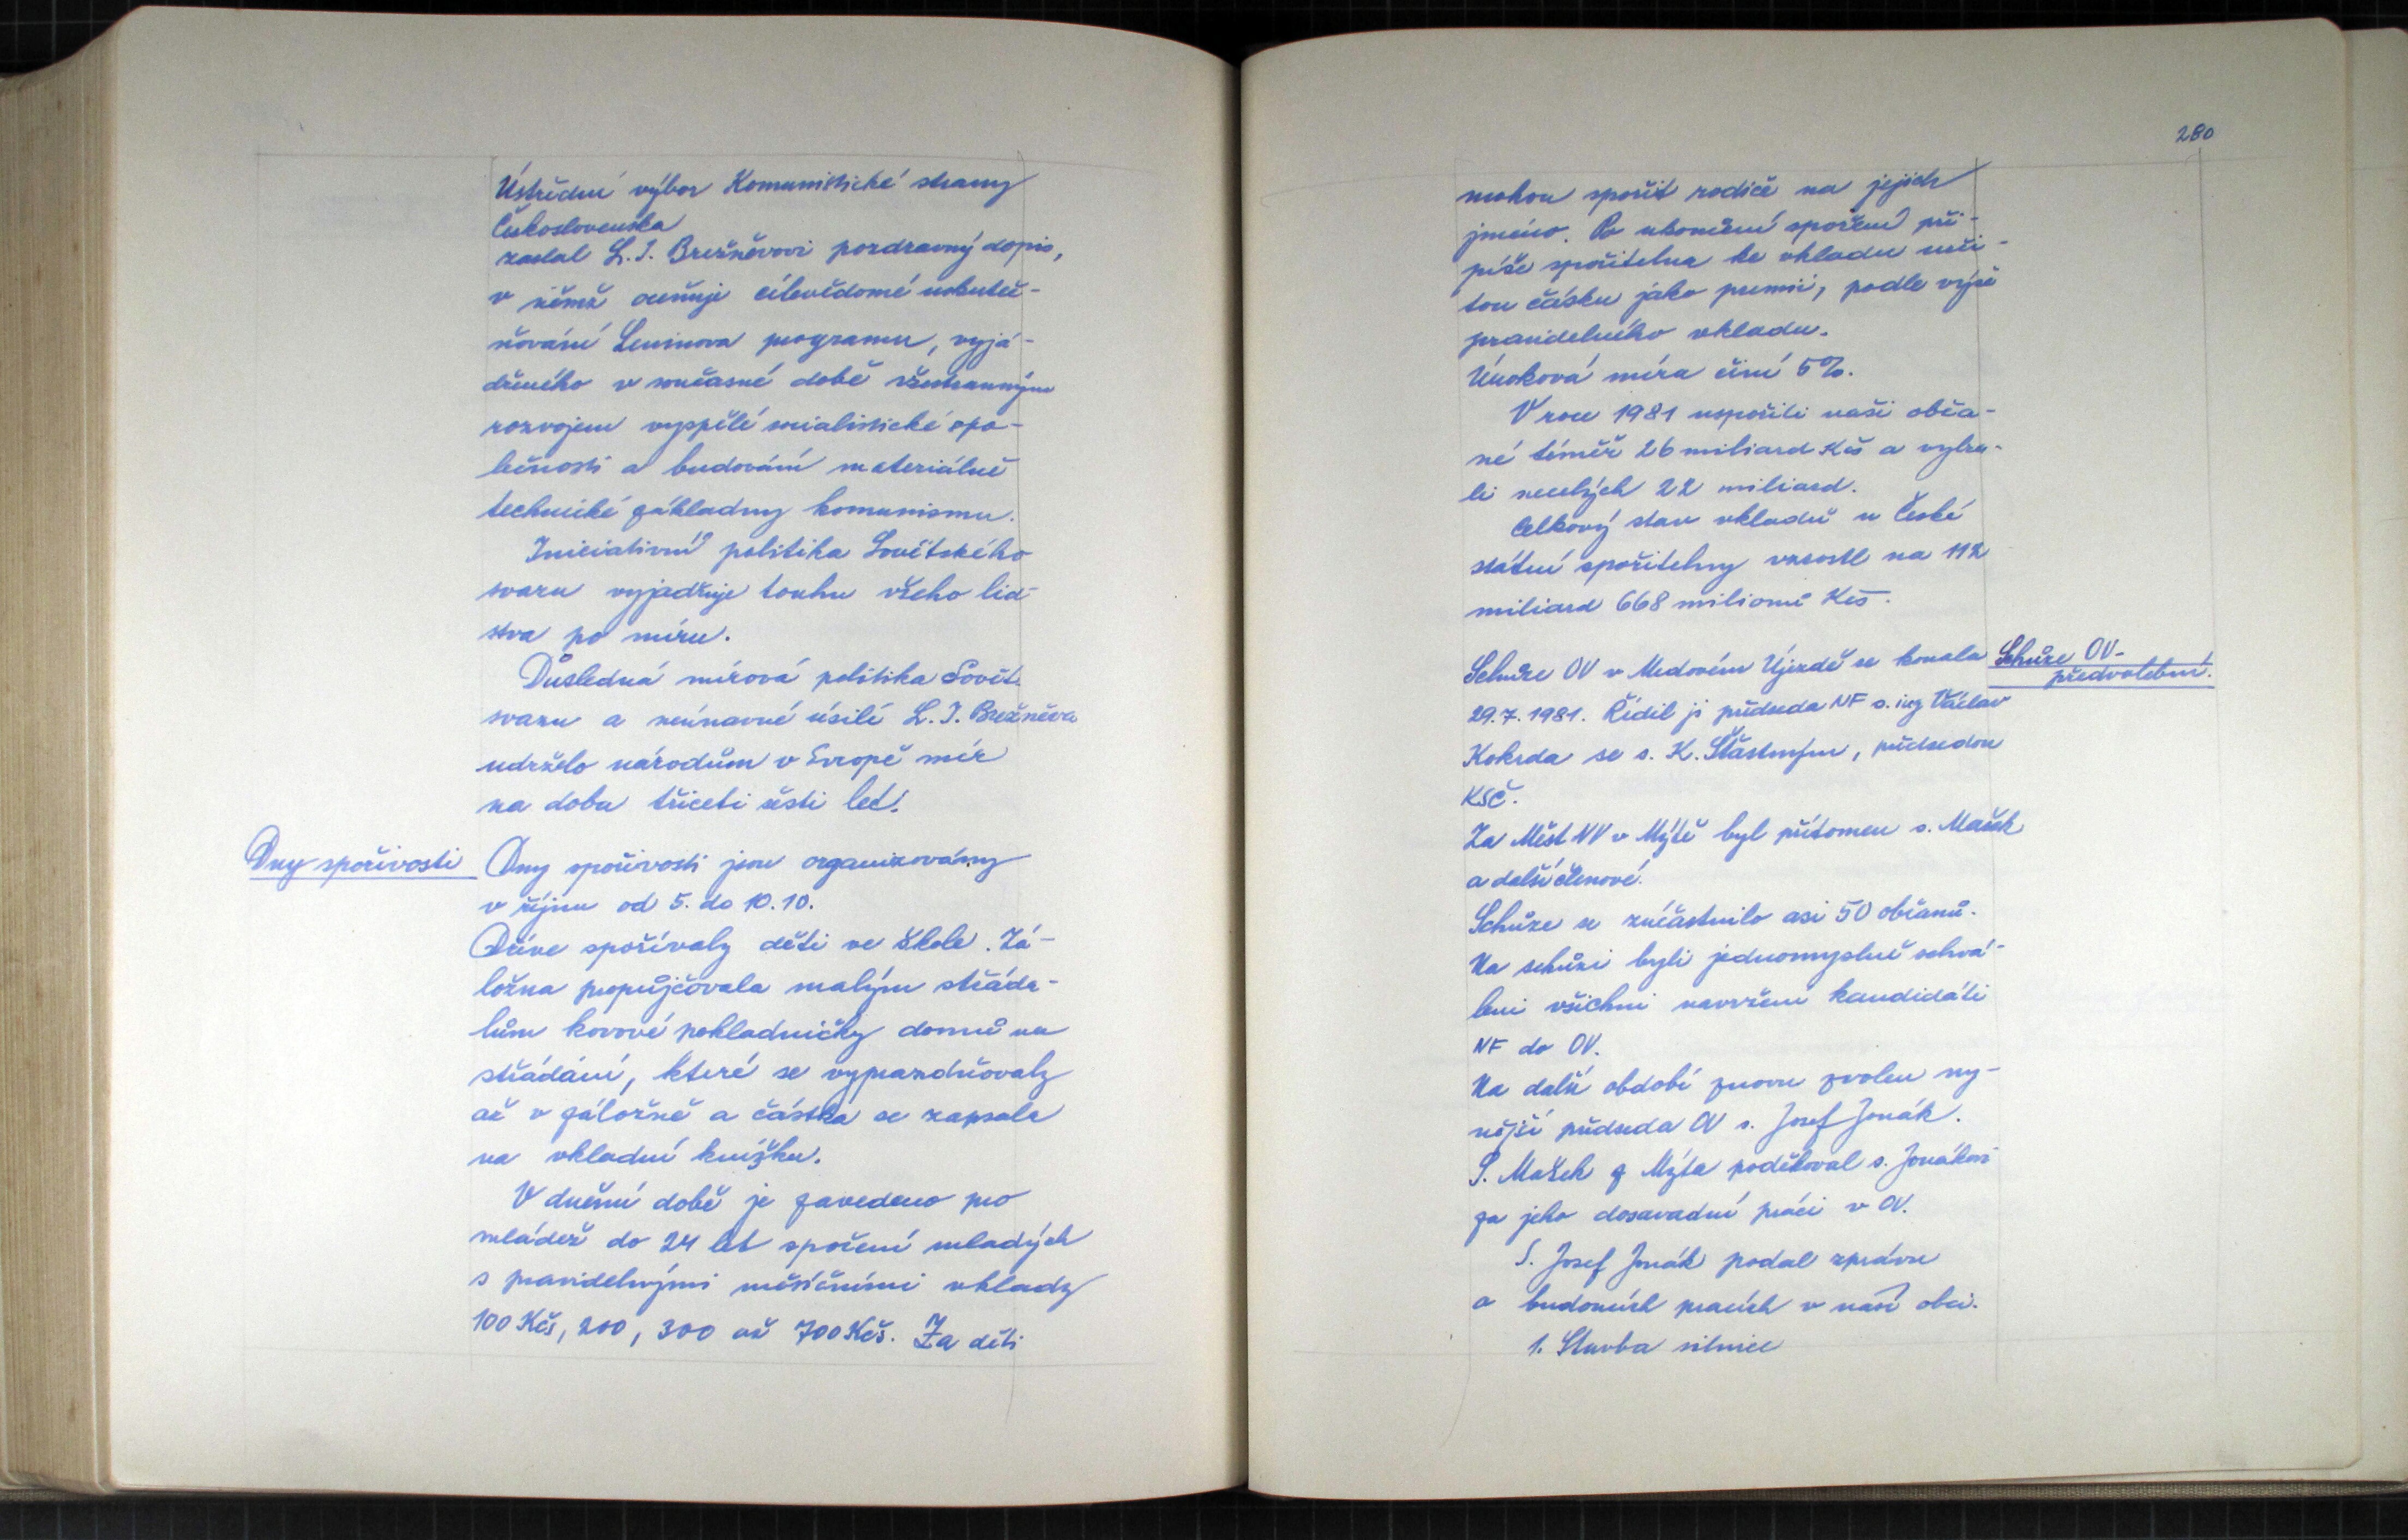 Ústřední výbor Komunistické strany
Československa
zaslal L. I. Brežněvovi pozdravný dopis,
v němž oceňuje cílevědomé uskuteč-
ňování Leninova programu, vyjá-
dřeného v současné době všestranným
rozvojem vyspělé socialistické spo-
lečnosti a budování materiálně
technické základny komunismu.
Iniciativní politika Sovětského
svazu vyjadřuje touhu všeho lid-
stva po míru.
Důsledná mírová politika Sovět.
svazu a neúnavné úsilí L. I. Brežněva
udrželo národům v Evropě mír
na dobu třiceti šesti let.
Dny spořivosti
Dny spořivosti jsou organizovány
v říjnu od 5. do 10. 10.
Dříve spořívaly děti ve škole. Zá-
ložna propůjčovala malým střáda-
lům kovové pokladničky domů na
střádání, které se vyprazdňovaly
až v záložně a částka se zapsala
na vkladní knížku.
V dnešní době je zavedeno pro
mládež do 24 let spoření mladých
s pravidelnými měsíčními vklady
100 Kčs, 200, 300 až 700 Kčs. Za děti
280
mohou spořit rodiče na jejich
jméno. Po ukončení spoření při-
píše spořitelna ke vkladu urči-
tou částku jako premii, podle výše
pravidelného vkladu.
Úroková míra činí 5%.
V roce 1981 uspořili naši obča-
né téměř 26 miliard Kčs a vybra-
li necelých 22 miliard.
Celkový stav vkladů u České
státní spořitelny vzrostl na 112
miliard 668 milionů Kčs.
Schůze OV-
předvolební.
Schůze OV v Medovém Újezdě se konala
29. 7. 1981. Řídil ji předseda NF s. ing Václav
Kokrda se s. K. Šťastným, předsedou
KSČ.
Za Měst NV v Mýtě byl přítomen s. Mašek
a další členové.
Schůze se zúčastnilo asi 50 občanů.
Na schůzi byli jednomyslně schvá-
leni všichni navržení kandidáti
NF do OV.
Na další období znovu zvolen ny-
nější předseda OV s. Josef Jonák.
S. Mašek z Mýta poděkoval s. Jonákovi
za jeho dosavadní práci v OV.
S. Josef Jonák podal zprávu
o budoucích pracích v naší obci.
1. Stavba silnice